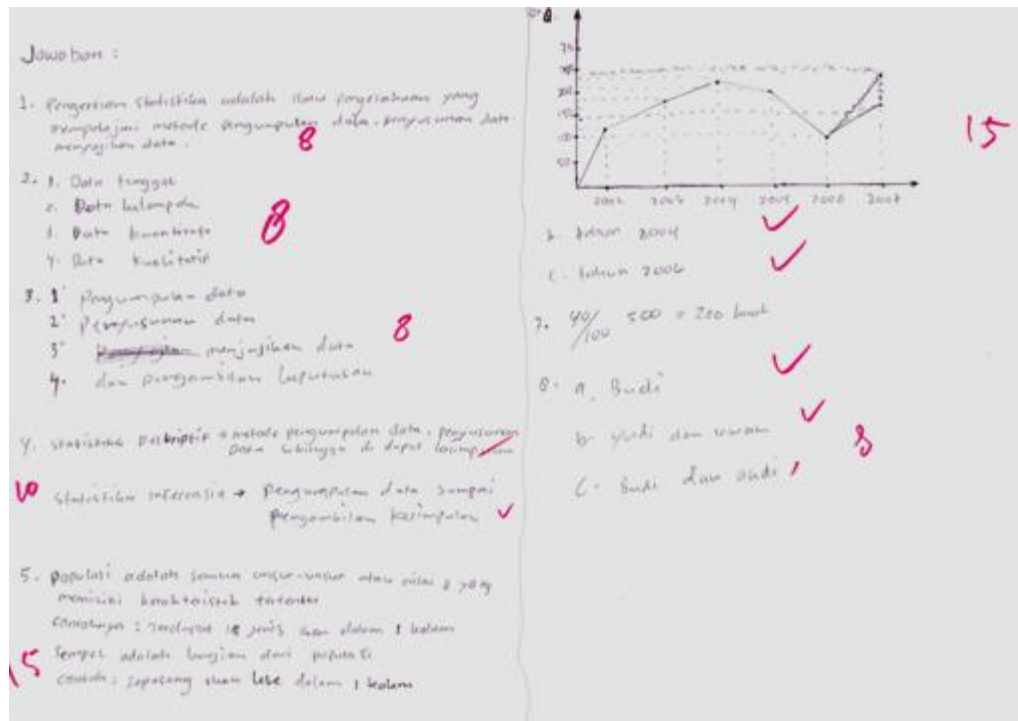 Jawaban :
1. Pengertian statistika adalah ilmu pengetahuan yang
mempelajari metode pengumpulan data, penyusunan data
menyajikan data.
8
2. 1. Data tunggal
2. Data kelompok
Data
4. Data kualitatif
8
3. 1 Pengumpulan data
2 Penyusunan data
3 menyajikan data
4. dan pengambilan keputusan
8
4. Statistika Deskriptif = metode pengumpulan data, penyusunan
Data sehingga di dapat
10
Statistika inferensia → Pengumpulan data sampai
Pengambilan kesimpulan
5. Populasi adalah semua unsur-unsur atau nilai 2 yang
memiliki karakteristik tertentu
: terdapat jenis ikan dalam 1 kolam
adalah bagian dari populasi
15
contoh : sepasang ikan lele dalam 1 kolam
150
100
50
2002 2003 2004 2005 2006 2007
15
b. tahun 2004
c. tahun 2006
7. 40/100 500 = 200
8. a. Budi
b. Yudi dan
c. Budi dan
8